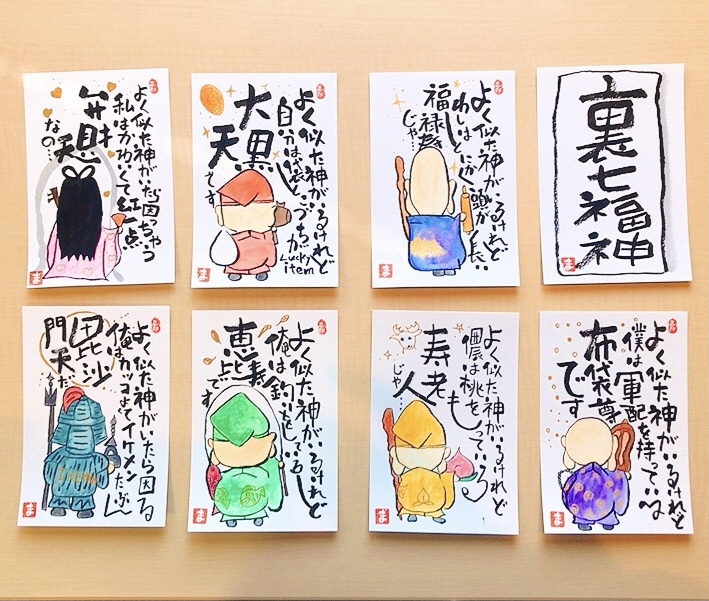 裏七福神
ま
よく似た神がいるけれど
わしはとにかく頭が長い
福禄寿
じゃ…
ま
よく似た神がいるけれど
自分は袋と小づちが
Lucky item
大黒
天です。
ま
よく似た神がいたら困っちゃう
私はかわいくて紅一点
弁財
天
なの…
ま
よく似た神がいるけれど
僕は軍配を持っている
布袋尊
です
ま
よく似た神がいるけれど
儂は桃をもっている
寿老
人
じゃ
ま
よく似た神がいるけれど
俺は釣りをしているし
恵比寿
です
ま
よく似た神がいたら困る
俺はカッコよくてイケメン
たぶん
毘沙
門天だ
ま